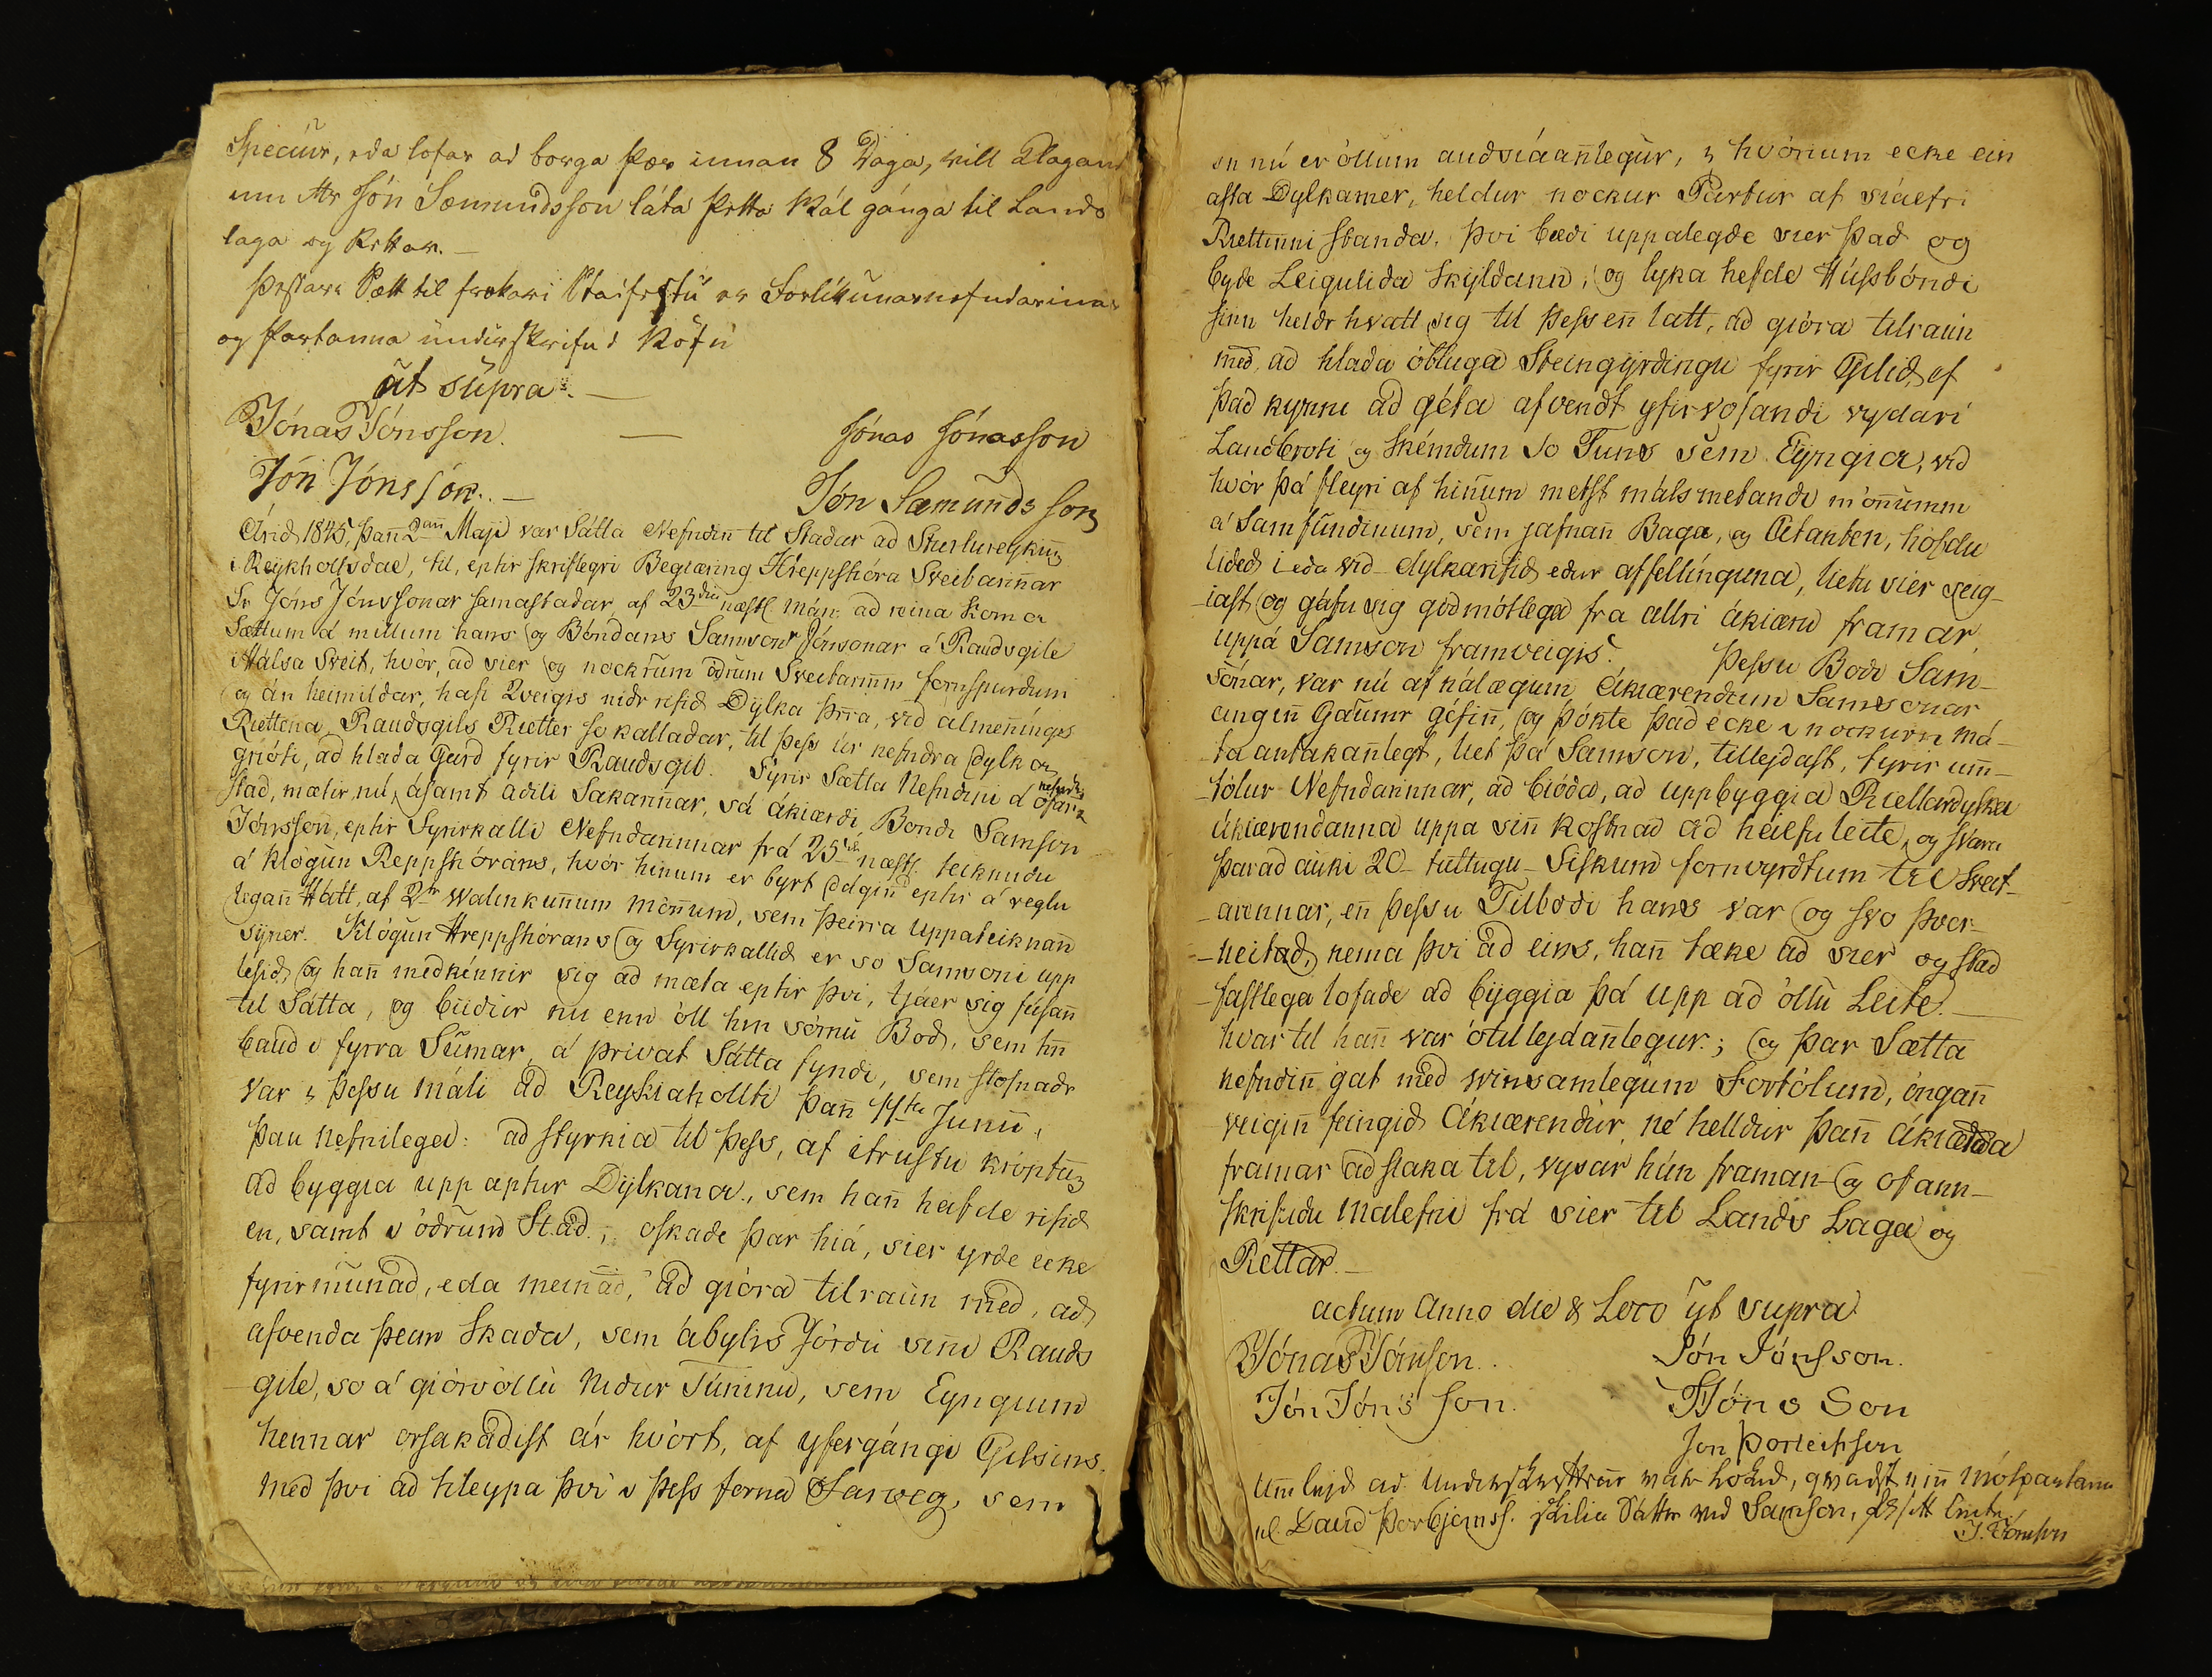 Speciur, eda lofar ad borga þær innan 8 Daga, vill Klagand
inn Mr Jón Sæmundsson láta þetta Mál gánga til Lands
laga og Rettar. —
Þessare Sætt til frekari Stadfestu er Forlíkunarnefndarinnar
og Partanna undirskrifud Nöfn
út supra. —
Jónas Jónsson. — Jónas Jónasson
Jón Jónsson. — Jón Sæmundsson
Árid 1845, þañ 2añ Maji var Sátta Nefndiñ til Stadar ad Sturlureykium
i Reykholtsdal, til, eptir skriflegri Begiæring Hreppstióra Sveitariñar
Sr Jóns Jónssonar samastadar, af 23die næstl. mán: ad reina koma
Sættum á millum hans og Bóndans Samsons Jónsonar á Raudsgile
i Hálsa Sveit, hvör, ad sier og nockrum ödrum Sveitarm̃m fornspurdum
og án heimildar, hafi 2veigis nidr rifid Dylka þrra, vid almeñings
Riettena Raudsgils Rietter so kalladar, til þess úr nefndra Dylka
griöti, ad hlada Gard fyrir Raudsgil. Fyrir Sætta Nefndini á ofan nefndu
stad, mætir nú, ásamt adili Sakarinnar, sá ákiærdi Bondi Samson
Jónsson, eptir Fyrirkalli Nefndarinnar frá 25ta næstl. teiknudu
á Klögun Reppstiórans, hvör hinum er byrt Ddginn eptir á reglu
legañ Hátt, af 2r Valinkuñum Möñum, sem þeirra Uppáteiknan
syner. Klögun Hreppstiórans og Fyrirkallid er so Samsoni upp
lesid, og hañ medkénnir sig ad mæta eptir því, tjáer sig fúsañ
til Sátta, og biídur nú enn öll hin sömu Bod, sem hñ
baud i fyrra Sumar, á privat Sátta fyndi, sem stofnadr
var i þessu máli ad Reykiaholti þañ 14da Junii,
þau nefnilega: ad styrkia til þess, af itrustu kröptum
ad byggia upp aptur Dylkana, sem hañ hafde rifid
en, samt i ödrum Stad., oskade þar hiá, sier yrde ecke
fyrirmunad, eda meinad, ad giöra tilraun med, ad
afvenda þeim Skada, sem ábylis Jördu siñi Rauds
gile, so á giörvöllu Nidur Túninu, sem Eyngium
hennar orsakadist ár hvört, af yfergángi Gilsins.
med því ad hleypa því i þess forna Farveg, sem
en nú er öllum audsiáañlegur, i hvörium ecke ein
asta Dylkamer, heldur nockur Partur af siálfri
Riettinni standa. Því bædi uppálegde sier þad og
byde Leiguliða Skyldann, og lyka hefde Húsbóndi
sinn heldr hvatt sig til þess eñ latt, ad giöra tilraun
med, ad hlada öbluga Steingyrdingu fyrir Gilid, ef
þad kynni ad géta afvendt yfirvofandi vydari
Landbroti og Skémdum so Tuns sem Eyngia, vid
hvör þá fleyri af hiñum metst máls metandi möñumm
á Samfundinum, sem jafnañ Baga, og Átanten, höfdu
lided i eda vid dylkarifid edur affellinguna, lietu sier seig-
iast, og gáfu sig gódmótlega fra allri ákiæru framar
uppá Samson framveigis. Þessu Bodi Sam-
sonar, var nú af nálægum Ákiærendum Samsonar
engiñ Gaumr géfiñ, og þókte þad ecke i nockurn má-
ta antakañlegt, liet þá Samson, tilleydast, fyrir um̃-
tölur Nefndarinnar, ad bióda, ad uppbyggia Riettardylka
ákiærendanna uppa siñ kostnad ad hálfu leite, og svara
þarad auki 20 tuttugu Fiskum fornvyrdtum til Sveit-
arennar, eñ þessu Tilbodi hans var og svo þver-
neitad, nema því ad eins, hañ tæke ad sier og stad
fastlega lofade ad byggia þá upp ad öllu Leite. —
hvar til hañ var ótilleydañlegur; og þar Sætta
nefndiñ gat med vinsamlegum Fortölum, öngañ
veigiñ feingid Ákiærendur, né helldur þañ ákiærda
framar ad slaka til, vysar hún framan og ofann-
skrifudu malefni frá sier til Lands Laga og
Rettar. —
actum Anno die & Loco ut supra
Jónas Jónsson. Jón Jónsson.
Jón Jóns son. B Jóns Son
Jon Þorleifsson
Um leyd ad Underskrifter var lokid, qvadst eiñ mótpartana
nl. Daud Þorbjornss. skilia Sáttr vid Samson,
J. Jónsson